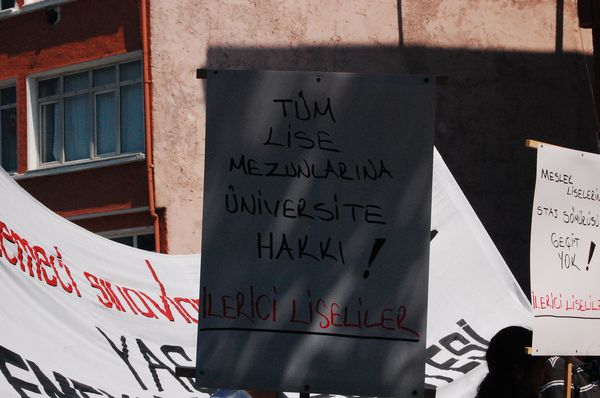 TÜM
LİSE
MEZUNLARINA
ÜNİVERSİTE
HAKKI !
İLERİCİ LİSELİLER
MESLEK
LİSELERİN
STAJ SÖMÜRÜSÜ
GEÇİT
YOK !
İLERİCİ LİSELİLER